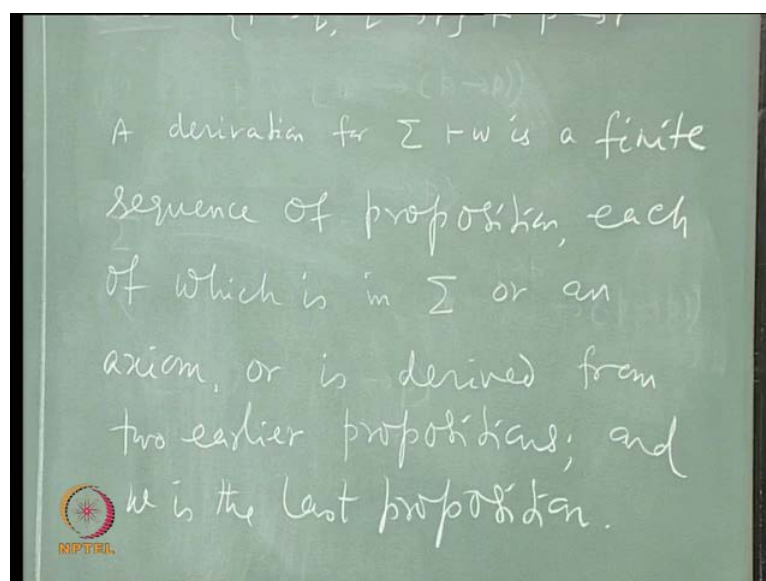 A derivation for Σ ⊢ w is a finite
sequence of proposition, each
of which is in Σ or an
axiom, or is derived from
two earlier propositions; and
w is the last proposition.
NPTEL